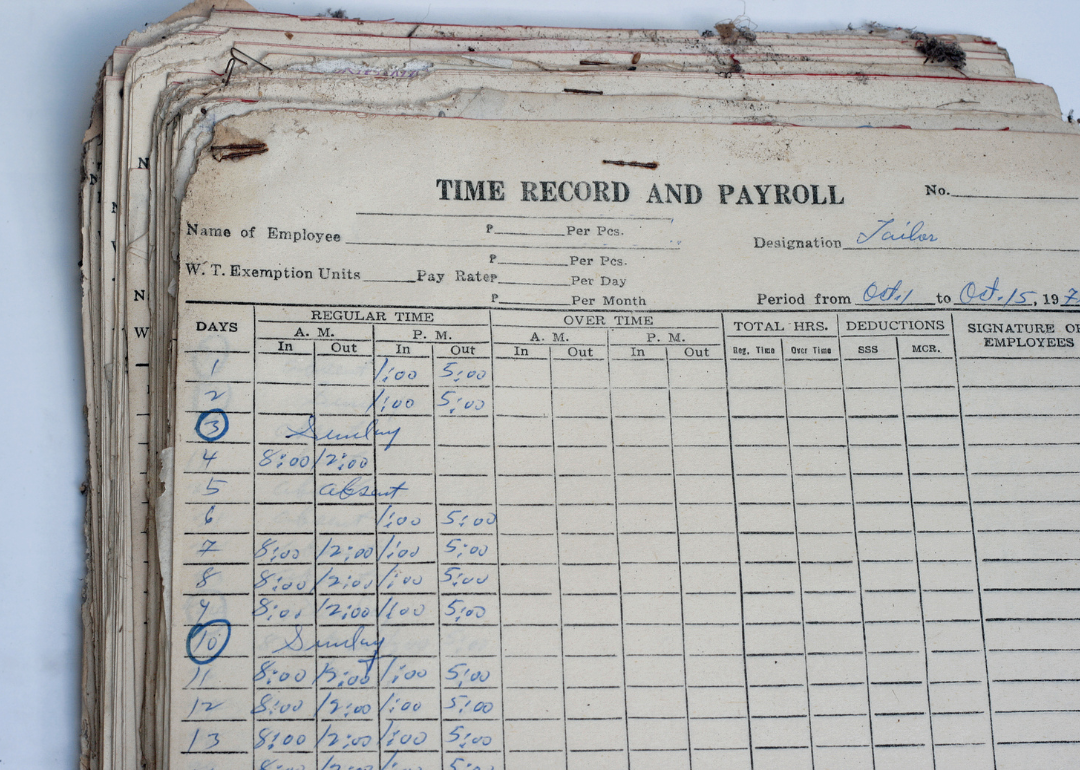 TIME RECORD AND PAYROLL No.
Name of Employee P Per Pcs. Designation Tailor
P Per Pcs.
W. T. Exemption Units Pay Rate P Per Day
P Per Month Period from Oct. 1 to Oct. 15, 197
DAYS REGULAR TIME OVER TIME TOTAL HRS. DEDUCTIONS SIGNATURE OF EMPLOYEES
A. M. P. M. A. M. P. M.
In Out In Out In Out In Out Reg. Time Over Time SSS MCR.
1 1:00 5:00
2 1:00 5:00
3 Sunday
4 8:00 12:00
5 absent
6 1:00 5:00
7 8:00 12:00 1:00 5:00
8 8:00 12:00 1:00 5:00
9 8:00 12:00 1:00 5:00
10 Sunday
11 8:00 12:00 1:00 5:00
12 8:00 12:00 1:00 5:00
13 8:00 12:00 1:00 5:00
8:00 12:00 1:00 5:00
N
N
N
W